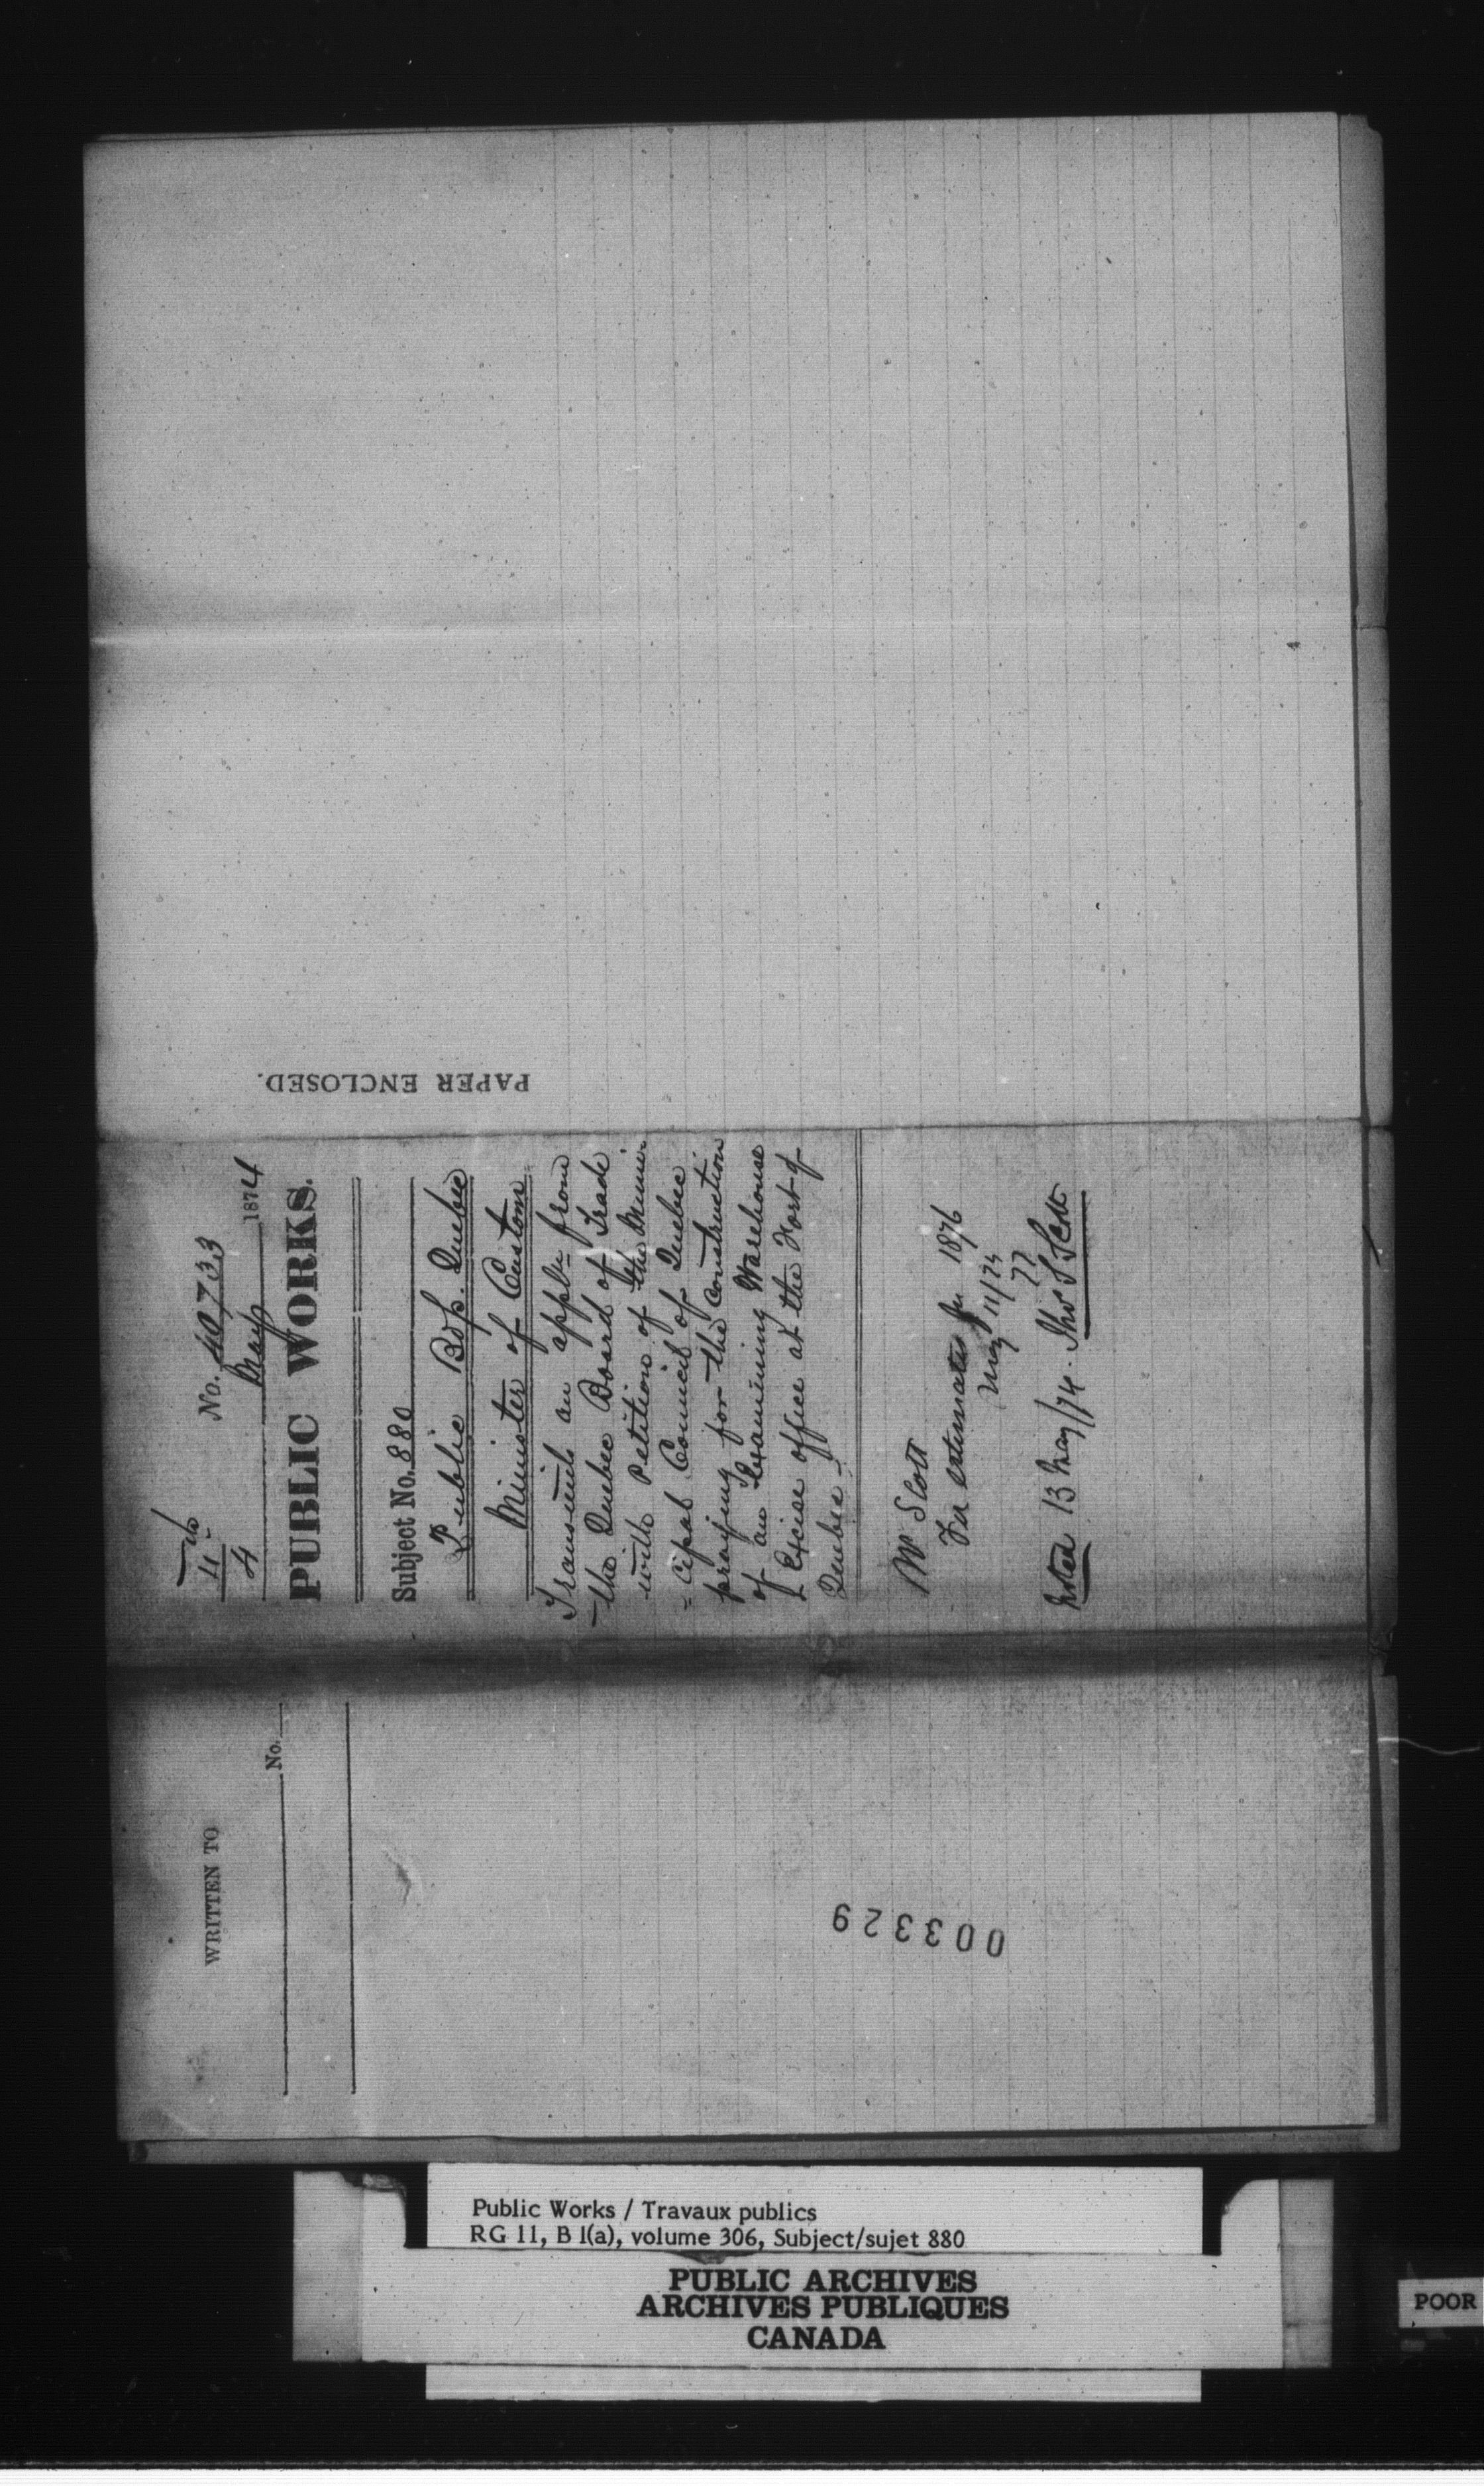 No. 40733
4
May 1874
PUBLIC WORKS.
Subject No. 880
Public Bdgs. Quebec
Minister of Customs
Transmits an appln from
the Quebec Board of Trade
with Petition of the Muni-
=cipal Council of Quebec
praying for the construction
of an Examining Warehouse
& Excise office at the Port of
Quebec -
Mr Scott
For estimates for 1876
77
Noted 13 May/74. Thos S Scott
PAPER ENCLOSED.
WRITTEN TO
No.
003329
Public Works / Travaux publics
RG 11, B 1(a), volume 306, Subject/sujet 880
PUBLIC ARCHIVES
ARCHIVES PUBLIQUES
CANADA
POOR